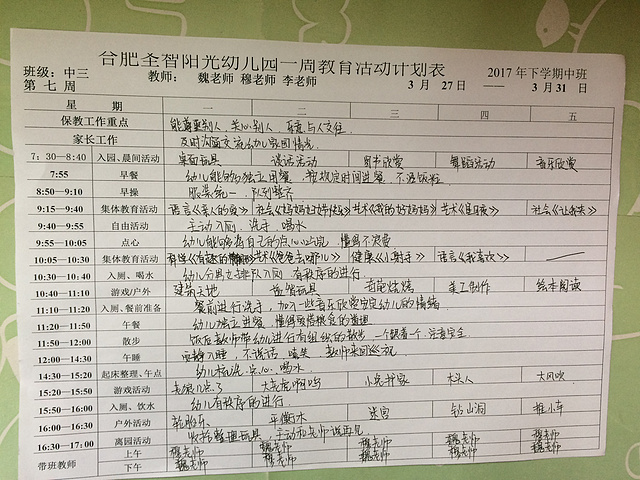 合肥全智阳光幼儿园一周教育活动计划表
班级：中三 教师： 魏老师 穆老师 李老师 2017 年下学期中班
第 七 周 3 月 27 日 —— 3 月 31 日
星 期 一 二 三 四 五
保教工作重点 能尊重别人、关心别人、乐意与人交往。
家长工作 及时沟通交流幼儿家园情况
7：30—8:40 入园、晨间活动 桌面玩具 谈话活动 图书欣赏 舞蹈活动 音乐欣赏
7:55 早餐 幼儿能够独立用餐，按规定时间进餐，不浪费
8:50—9:10 早操 服装统一，队列整齐
9:15—9:40 集体教育活动 语言《亲人的爱》 社会 艺术《我的好妈妈》 艺术 社会《让我来》
9:40—9:55 自由活动 主动入厕、洗手、喝水
9:55—10:05 点心 幼儿能够
10:05—10:30 集体教育活动 健康《小射手》 语言《我喜欢》 —
10:30—10:40 入厕、喝水 幼儿分男女排队入厕，有秩序的进行
10:40—11:10 游戏/户外 建筑天地 益智玩具 美工制作 绘本阅读
11:10—11:20 入厕、餐前准备 餐前进行洗手，加入一些音乐欣赏安定幼儿的情绪
11:20—11:50 午餐 幼儿独立进餐，懂得爱惜粮食的道理
11:50—12:00 散步 饭后教师带幼儿进行有组织的散步，一个跟着一个，注意安全
12:00—14:30 午睡 安静入睡，不说话、嬉笑，教师来回巡视
14:30—15:20 起床整理、午点 幼儿梳洗、点心、喝水
15:20—15:50 游戏活动 老狼几点了 大老虎啊呜 木头人 大风吹
15:50—16:00 入厕、饮水 幼儿有秩序的进行
16:00—16:30 户外活动 平衡木 迷宫 钻山洞 推小车
16:30—17:00 离园活动 收拾整理玩具，主动和老师说再见
带班教师 上午 穆老师 魏老师 穆老师 魏老师 穆老师
下午 魏老师 穆老师 魏老师 穆老师 魏老师